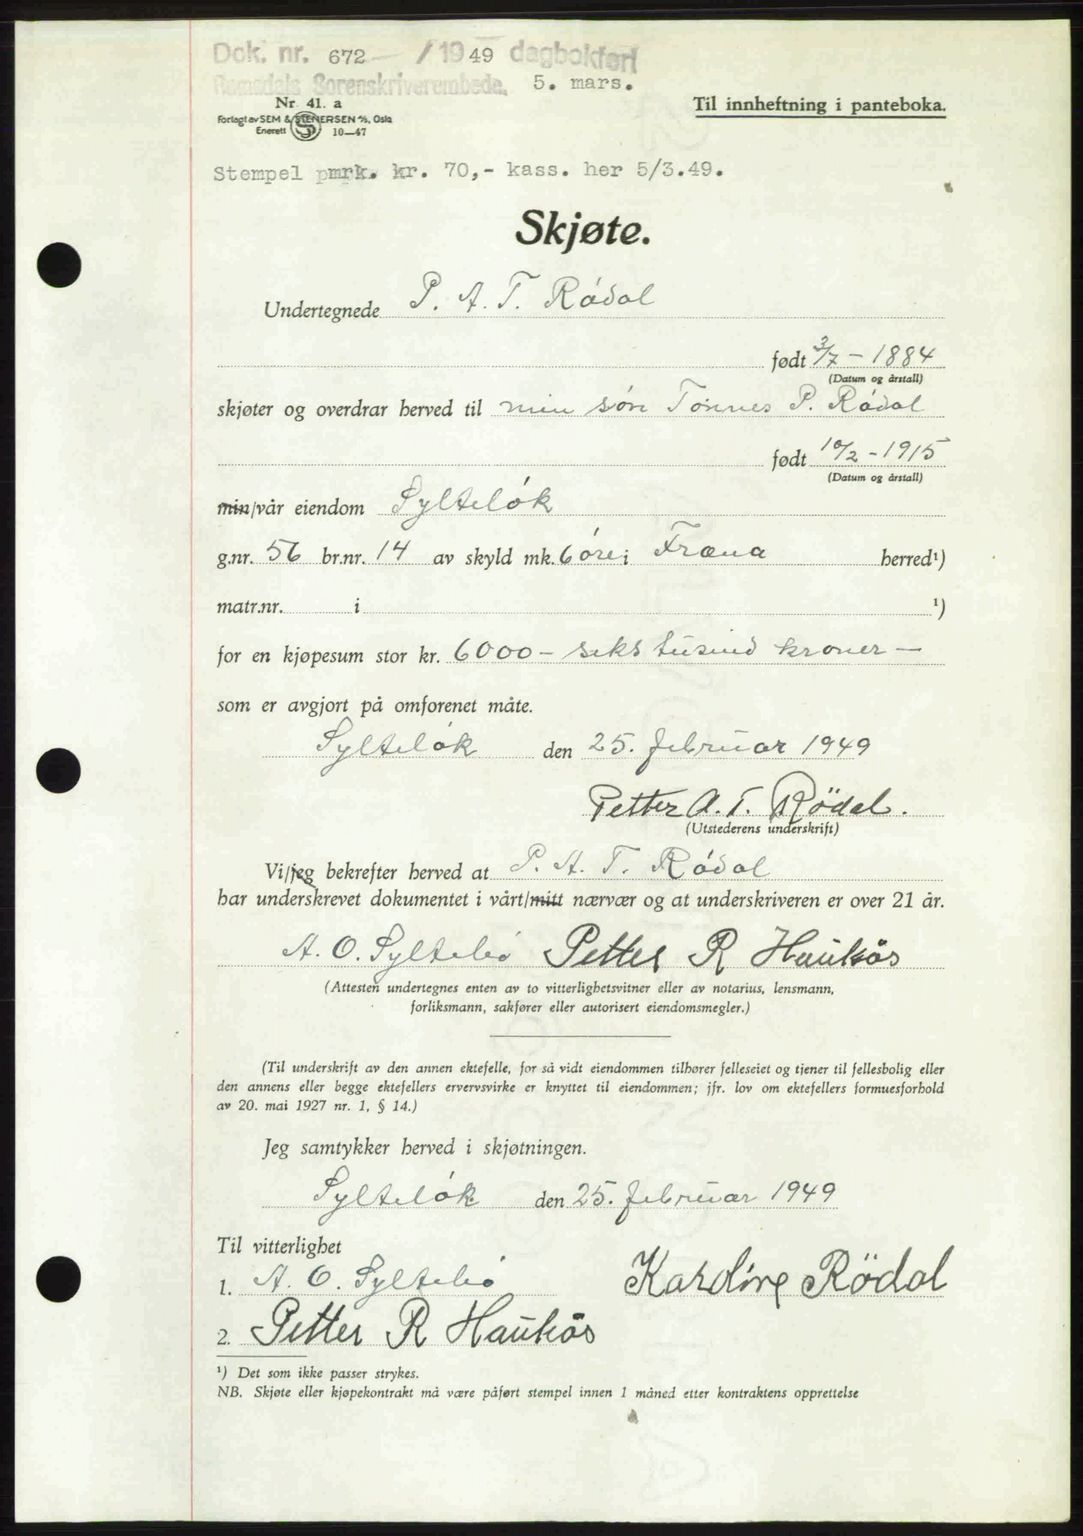 Dok. nr. 672 / 1949 dagbokført
Romsdals Sorenskriverembede. 5. mars.
Nr. 41. a
Forlagt av SEM & STENERSEN A/S, Oslo
Enerett S 10—47
Til innheftning i panteboka.
Stempel pmrk. kr. 70,- kass. her 5/3.49.
Skjøte.
Undertegnede P. A. T. Rødal
født 3/7 - 1884
(Datum og årstall)
skjøter og overdrar herved til min søn Tønnes P. Rødal
født 10/2 - 1915
(Datum og årstall)
min/vår eiendom Sylteløk
g.nr. 56 br.nr. 14 av skyld mk. 6 øre i Fræna herred¹)
matr.nr. i ¹)
for en kjøpesum stor kr. 6000 - seks tusind kroner -
som er avgjort på omforenet måte.
Sylteløk den 25. februar 1949
Petter A. T. Rödal.
(Utstederens underskrift)
Vi/jeg bekrefter herved at P. A. T. Rødal
har underskrevet dokumentet i vårt/mitt nærvær og at underskriveren er over 21 år.
A. O. Syltebø Petter R Haukås
(Attesten undertegnes enten av to vitterlighetsvitner eller av notarius, lensmann,
forliksmann, sakfører eller autorisert eiendomsmegler.)
(Til underskrift av den annen ektefelle, for så vidt eiendommen tilhører felleseiet og tjener til fellesbolig eller
den annens eller begge ektefellers ervervsvirke er knyttet til eiendommen; jfr. lov om ektefellers formuesforhold
av 20. mai 1927 nr. 1, § 14.)
Jeg samtykker herved i skjøtningen.
Sylteløk den 25. februar 1949
Til vitterlighet
1. A. O. Syltebø Karoline Rödal
2. Petter R Haukås
¹) Det som ikke passer strykes.
NB. Skjøte eller kjøpekontrakt må være påført stempel innen 1 måned etter kontraktens opprettelse